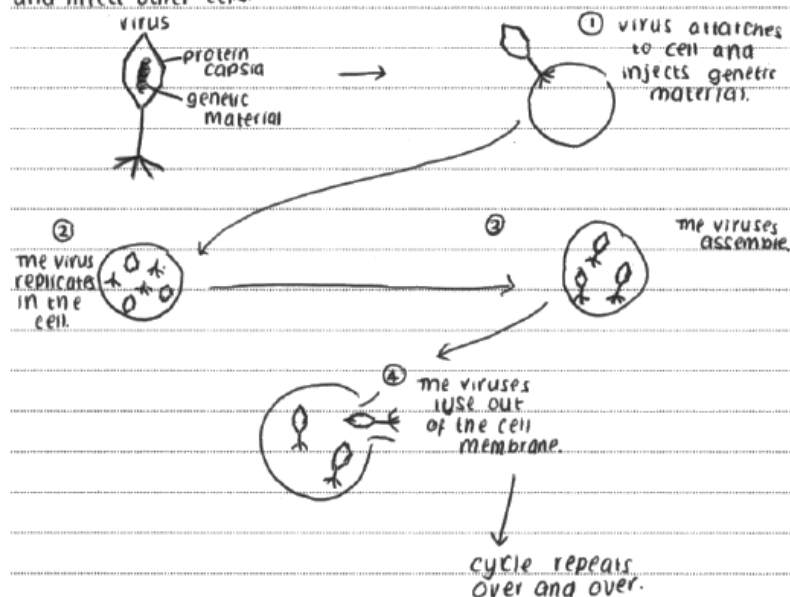 and infect other cells.
virus
protein
capsid
genetic
material
① virus attatches
to cell and
injects genetic
material.
②
The virus
replicates
in the
cell.
③
The viruses
assemble.
④
The viruses
lyse out
of the cell
membrane.
cycle repeats
over and over.